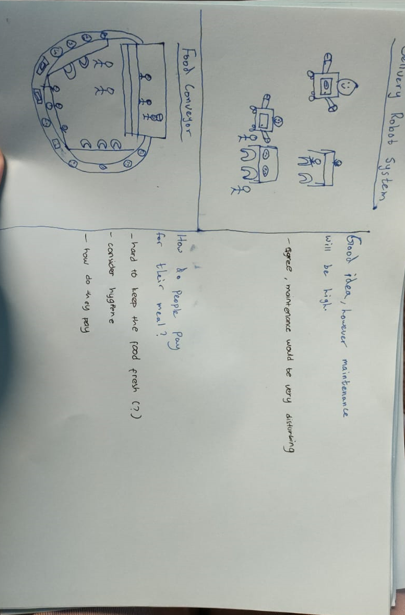 Delivery Robot System
Good idea, however maintenance
will be high.
- agree, maintenance would be very disturbing
Food Conveyor
How do people pay
for their meal?
- hard to keep the food fresh (?)
- consider hygiene
- how do they pay